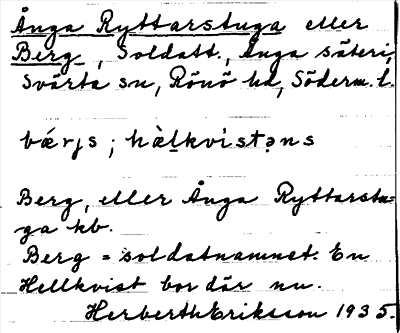 Ånga Ryttarstuga eller
Berg, Soldatt., Ånga säteri,
Svärta sn, Rönö hd, Söderm. l.
bǽrjs ; hàlkvistəns
Berg, eller Ånga Ryttarstu=
ga kb.
Berg = soldatnamnet. En
Hellkvist bor där nu.
Herberth Eriksson 1935.